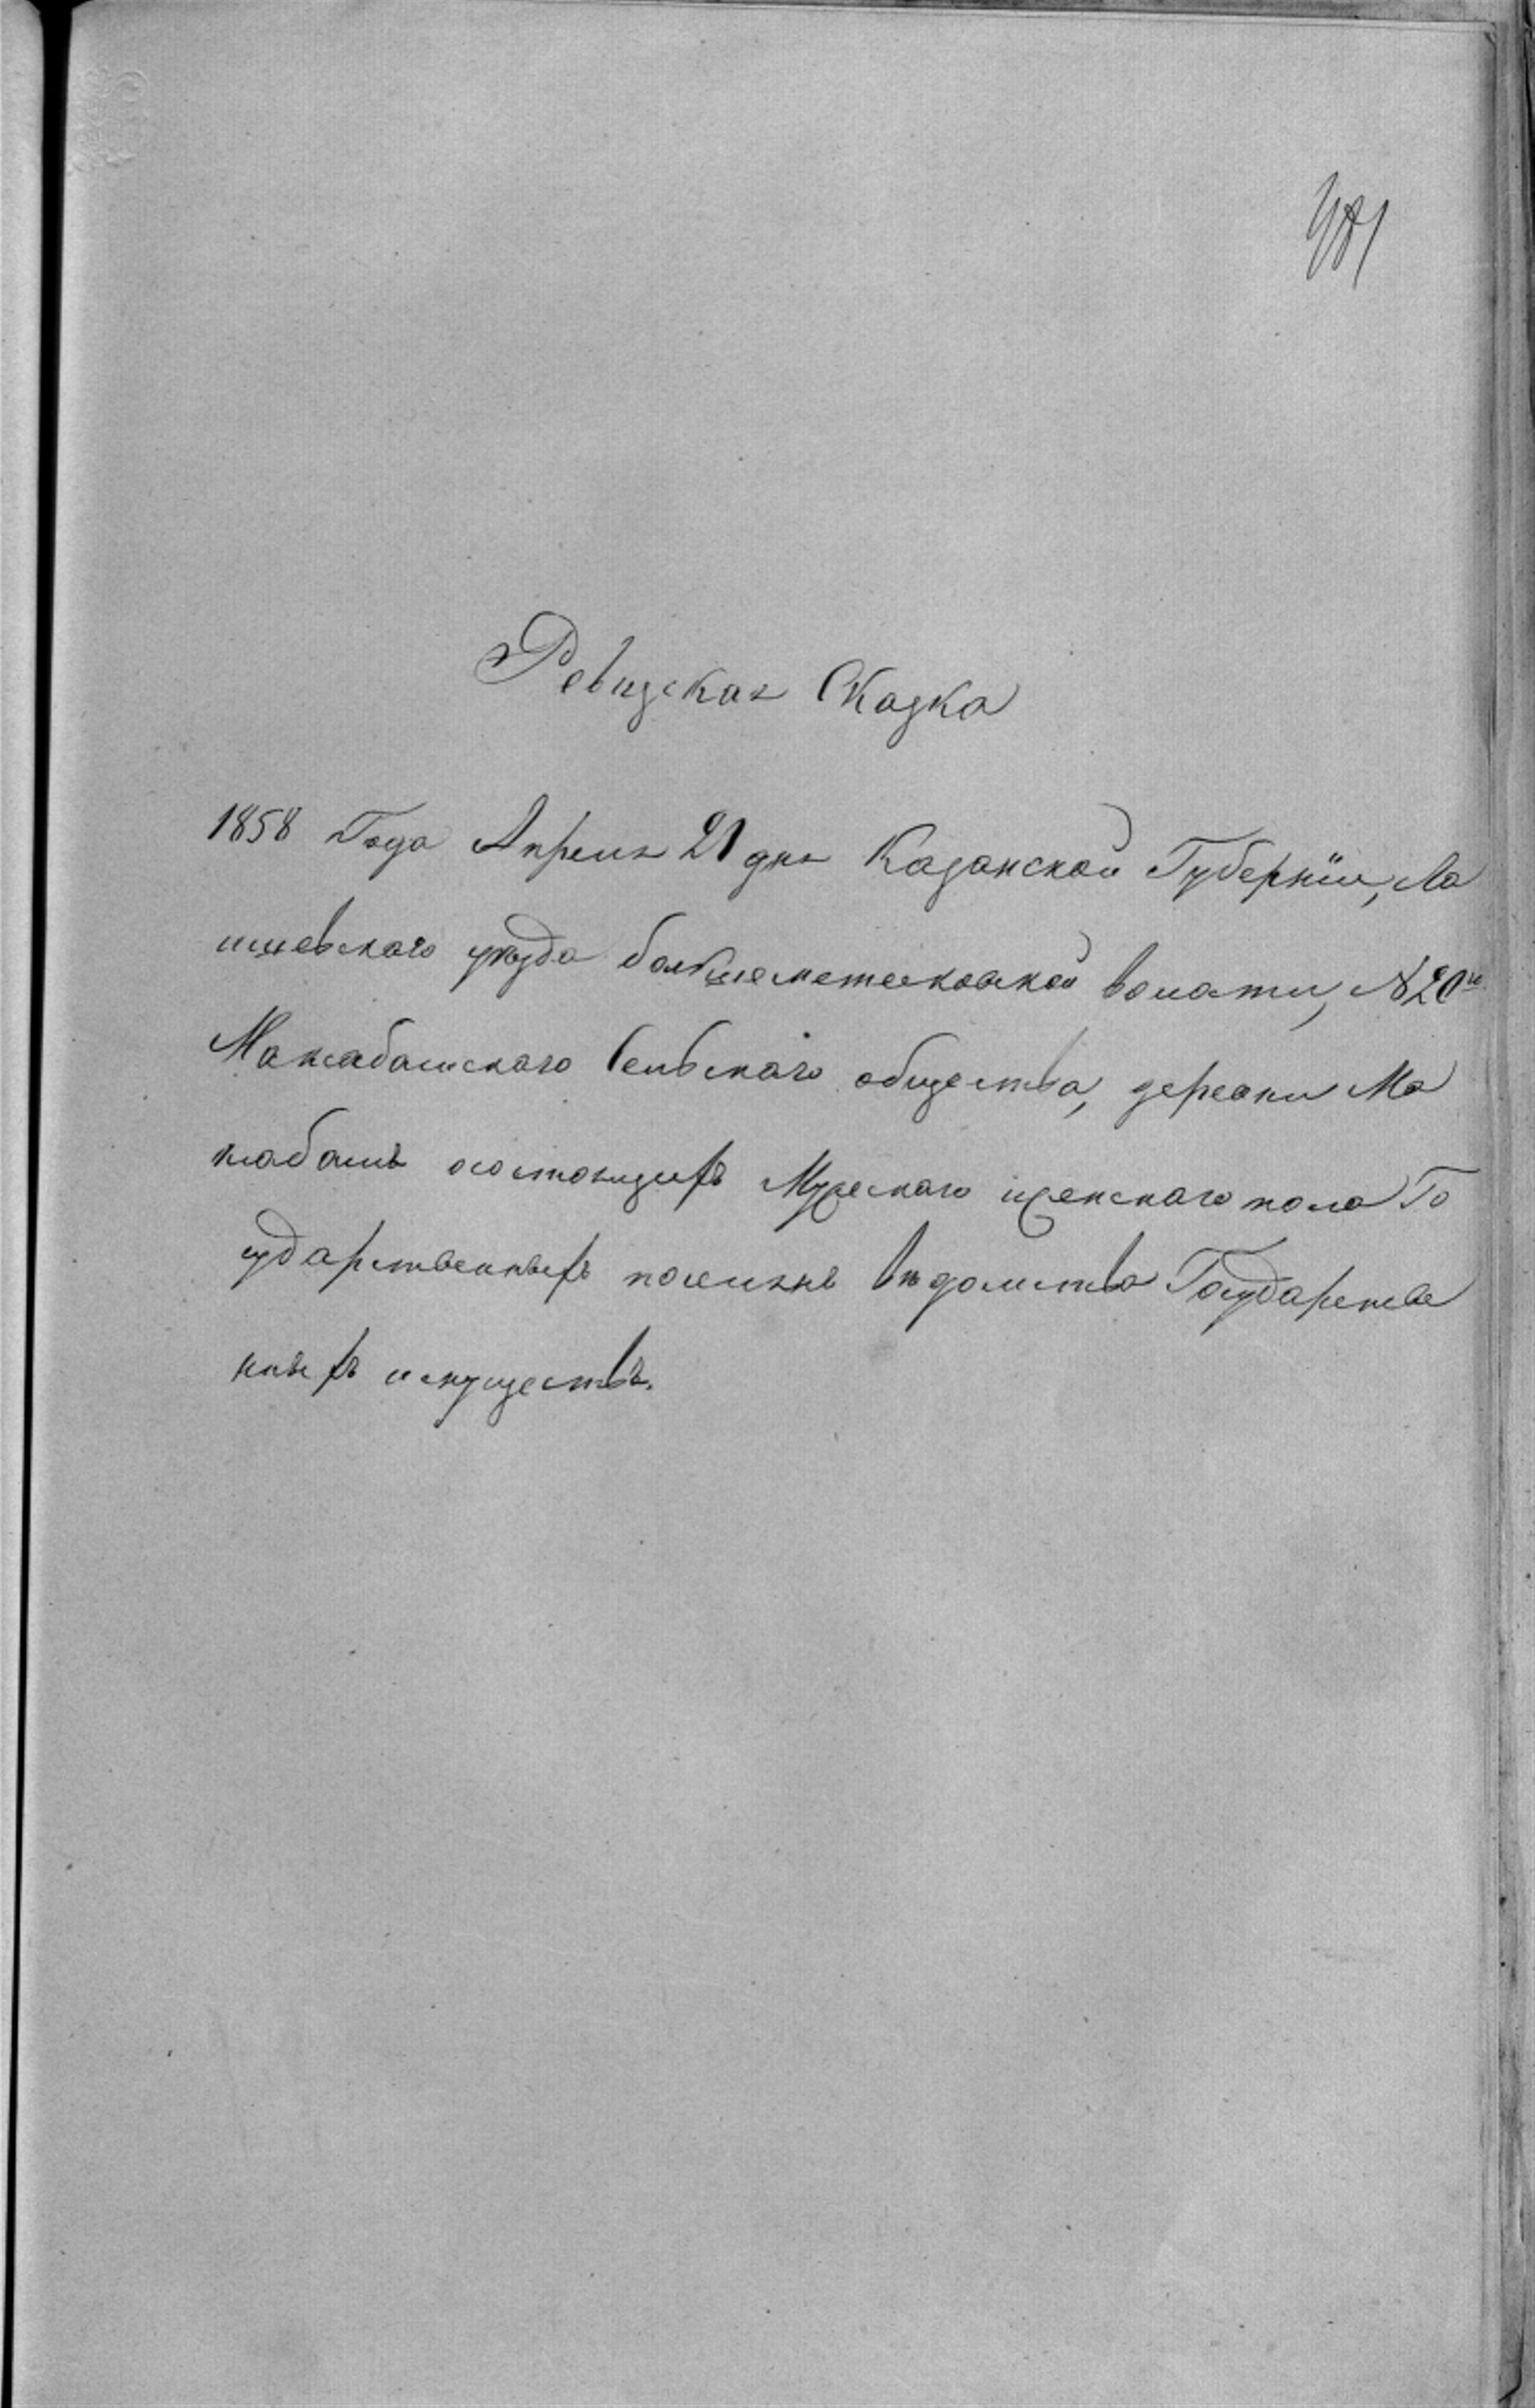 Ревизская Сказка
1858 Года Апреля 21 дня Казанской Губерніи, Ла
ишевскаго уѣзда больше метесковской волости, №20го
Максабашскаго Сельскаго общества, деревни Ма
ксабашъ состоящихъ Мужескаго и женскаго пола Го
сударственныхъ поселянъ Вѣдомства Государстве
нныхъ имуществъ.